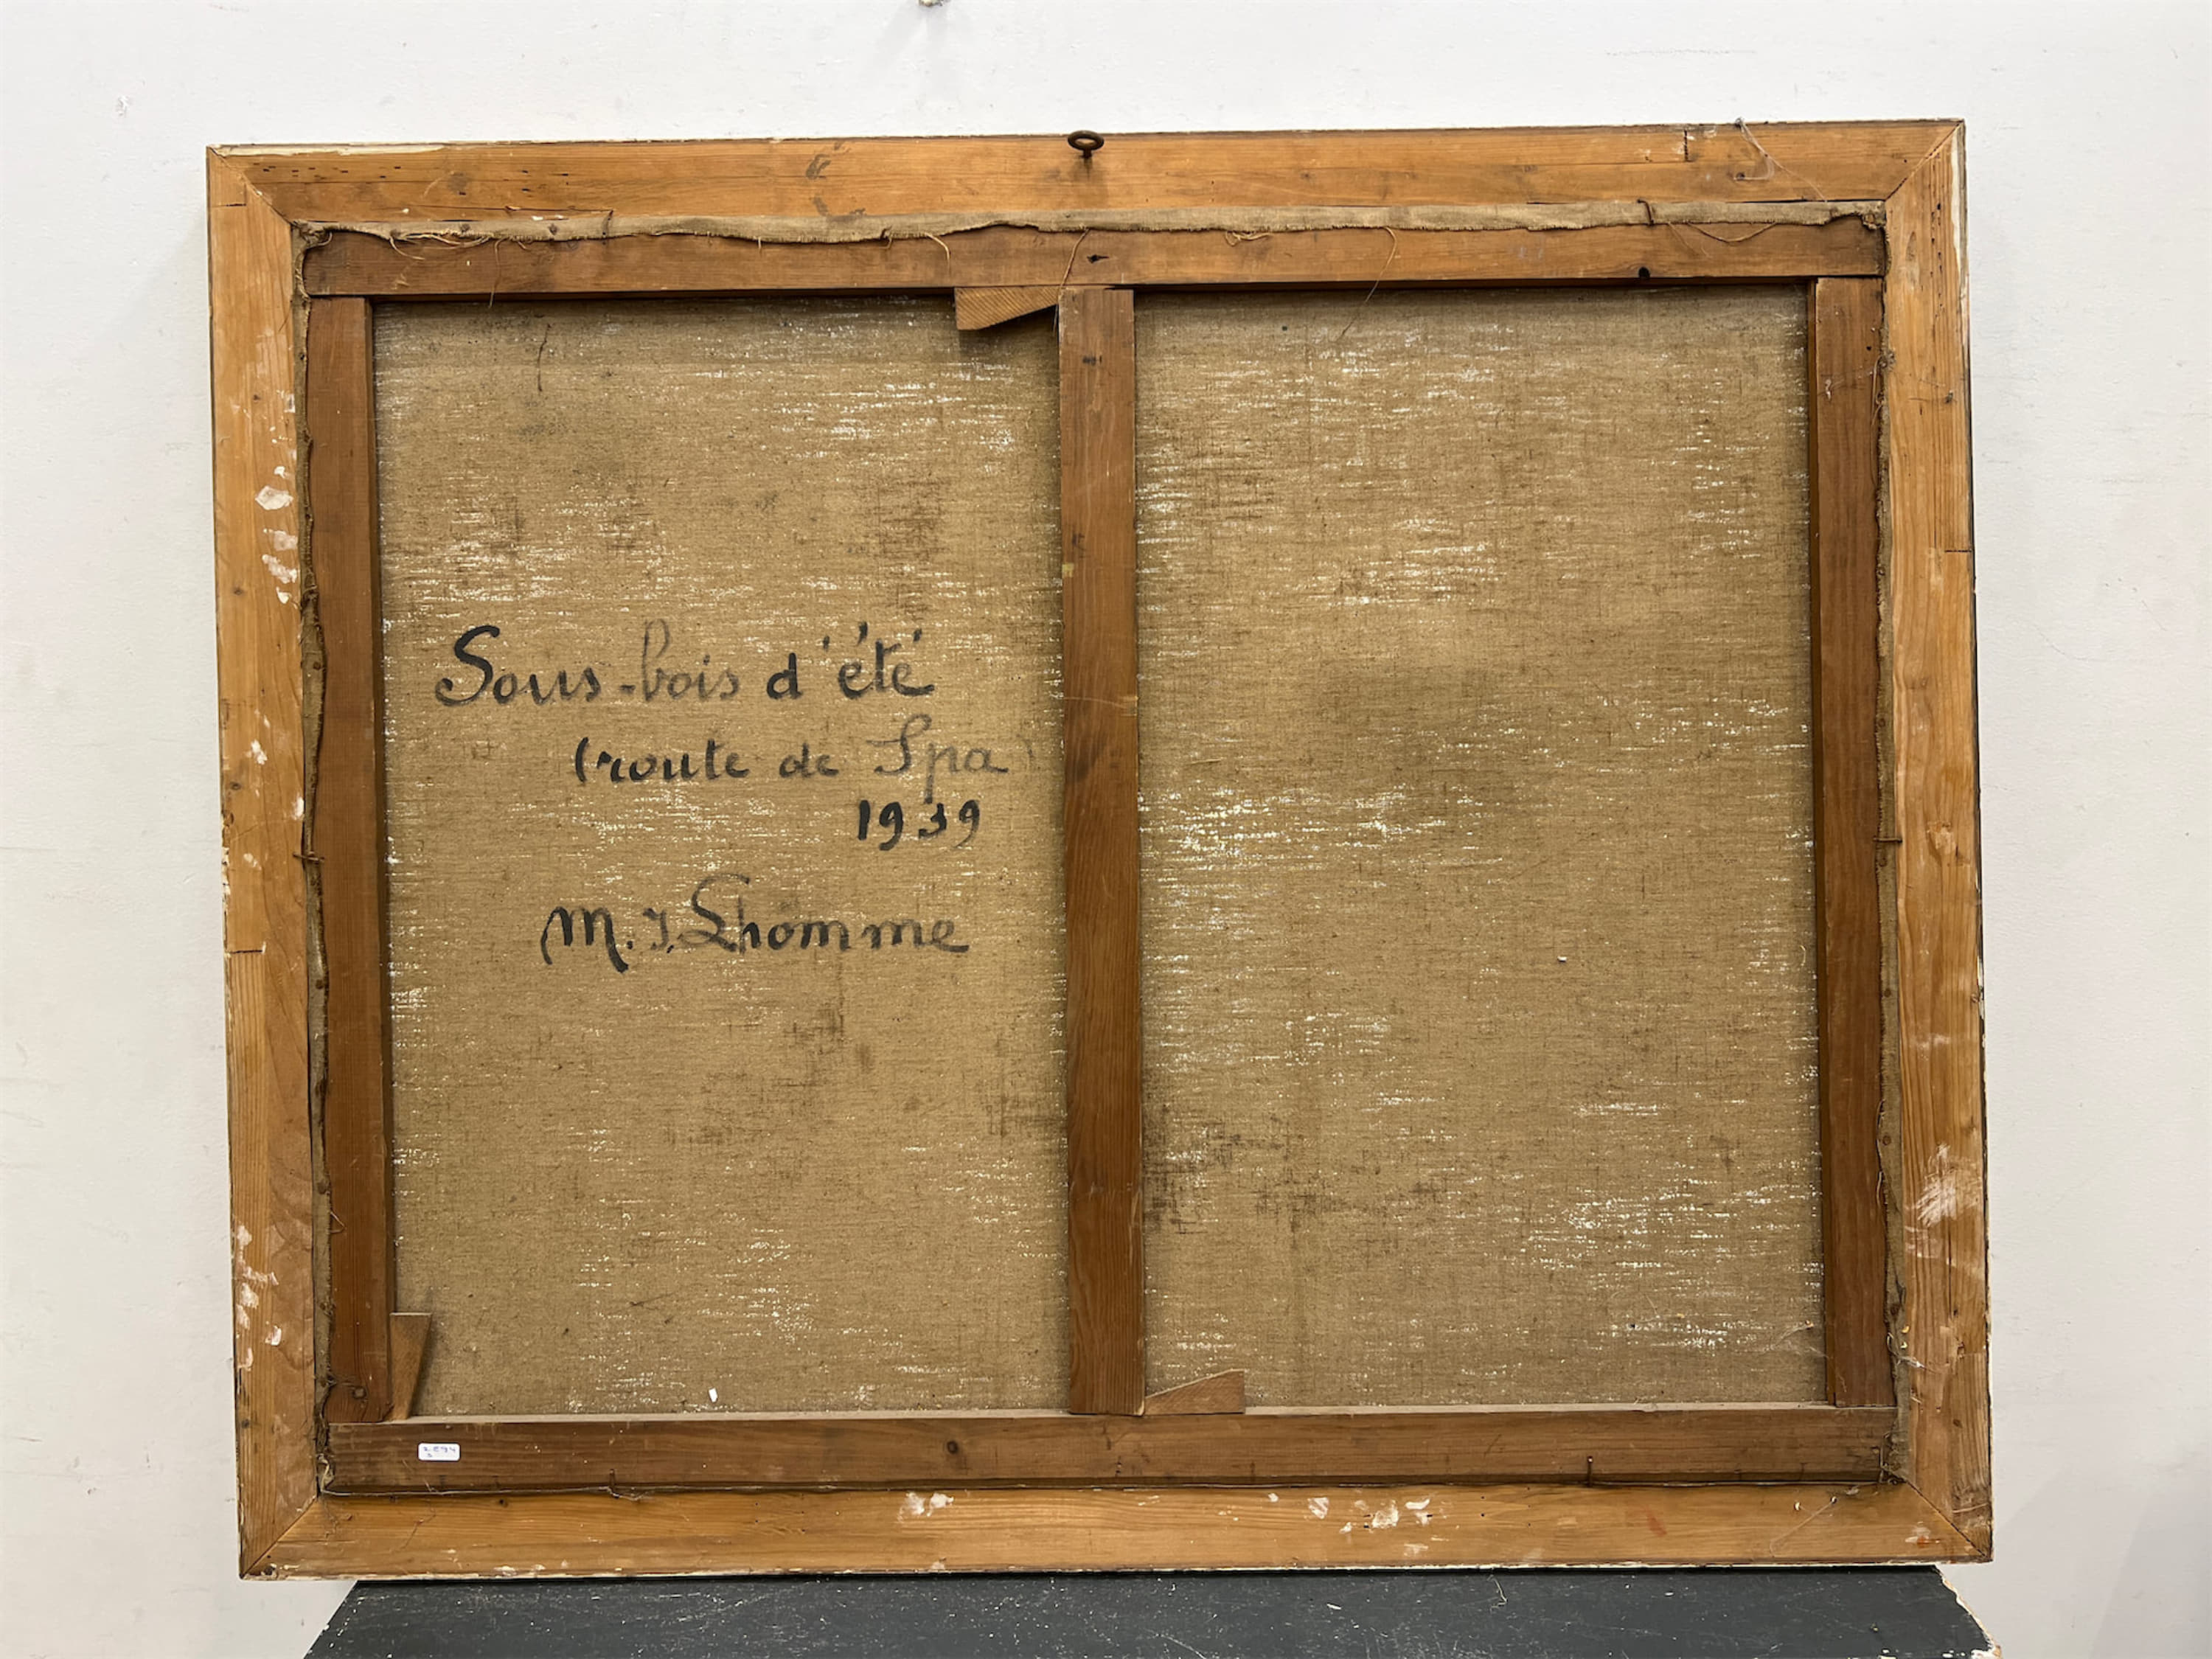 Sous-bois d'été
(route de Spa)
1939
M. J. Lhomme